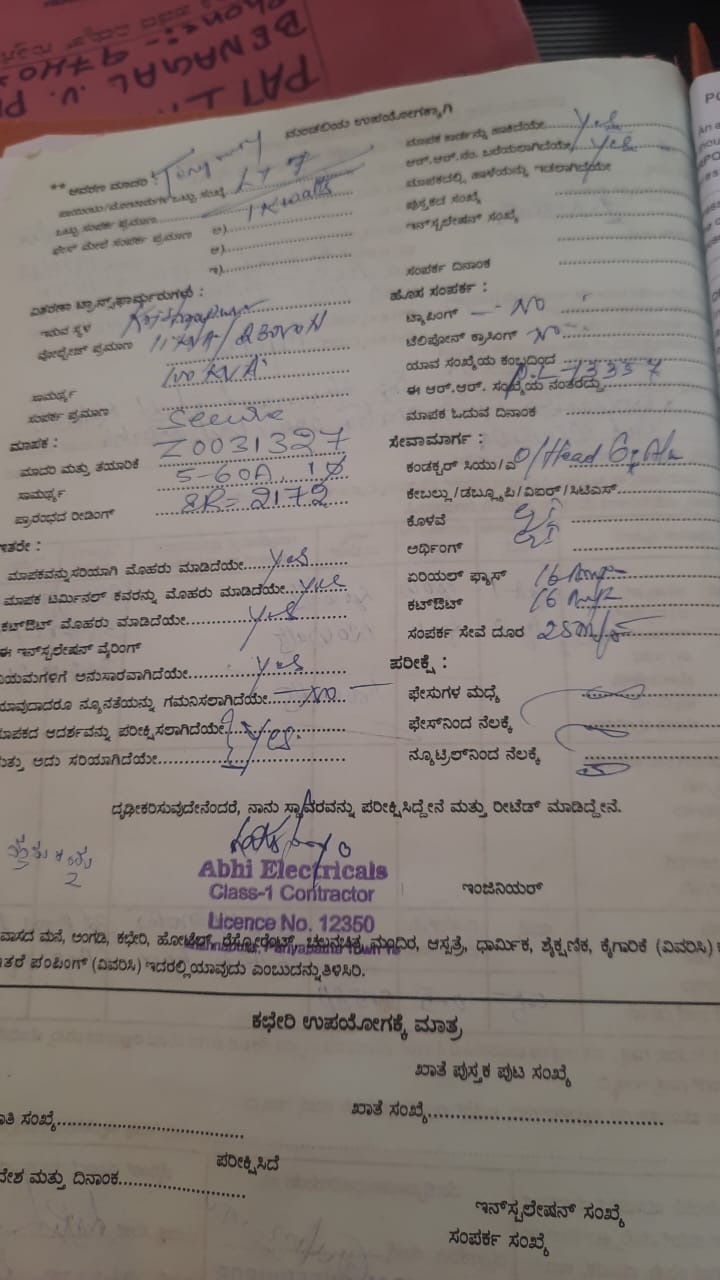 PATIL
BENAGAL V. P
Phone:- 9740
ಮಂಡಲಿಯ ಉಪಯೋಗಕ್ಕಾಗಿ
** ಆವರಣ ಮಾದರಿ : Tempory
ಪಾಯಿಂಟು/ಮೋಟಾರುಗಳ ಒಟ್ಟು ಸಂಖ್ಯೆ LT 7
ಒಟ್ಟು ಸಂಪರ್ಕ ಪ್ರಮಾಣ 1 Kwatts
ಫೇಸ್ ಮೇಲೆ ಸಂಪರ್ಕ ಪ್ರಮಾಣ ಅ)
ಆ)
ಇ)
ವಿತರಣಾ ಟ್ರಾನ್ಸ್‌ಫಾರ್ಮರುಗಳು :
ಇರುವ ಸ್ಥಳ
ವೋಲ್ಟೇಜ್ ಪ್ರಮಾಣ 11 KVA/
100 KVA
ಸಾಮರ್ಥ್ಯ
ಸಂಪರ್ಕ ಪ್ರಮಾಣ
ಮಾಪಕ : Secure
ಮಾದರಿ ಮತ್ತು ತಯಾರಿಕೆ Z0031327
ಸಾಮರ್ಥ್ಯ 5-60A, 1Ø
ಪ್ರಾರಂಭದ ರೀಡಿಂಗ್ SR= 2172
ಇತರೇ :
ಮಾಪಕವನ್ನು ಸರಿಯಾಗಿ ಮೊಹರು ಮಾಡಿದೆಯೇ Yes
ಮಾಪಕ ಟರ್ಮಿನಲ್ ಕವರನ್ನು ಮೊಹರು ಮಾಡಿದೆಯೇ Yes
ಕಟ್‌ಔಟ್ ಮೊಹರು ಮಾಡಿದೆಯೇ Yes
ಈ ಇನ್‌ಸ್ಟಲೇಷನ್ ವೈರಿಂಗ್
ಯಮಗಳಿಗೆ ಅನುಸಾರವಾಗಿದೆಯೇ Yes
ಯಾವುದಾದರೂ ನ್ಯೂನತೆಯನ್ನು ಗಮನಿಸಲಾಗಿದೆಯೇ No
ಮಾಪಕದ ಆದರ್ಶವನ್ನು ಪರೀಕ್ಷಿಸಲಾಗಿದೆಯೇ Yes
ಮತ್ತು ಅದು ಸರಿಯಾಗಿದೆಯೇ
ಮಾಪಕ ಕಾರ್ಡನ್ನು ಹಾಕಿದೆಯೇ Yes
ಆರ್.ಆರ್.ನಂ. ಬರೆಯಲಾಗಿದೆಯೇ Yes
ಮಾಪಕದಲ್ಲಿ ಹಾಳೆಯನ್ನು ಇಡಲಾಗಿದೆಯೇ
ಪುಸ್ತಕದ ಸಂಖ್ಯೆ
ಇನ್‌ಸ್ಟಲೇಷನ್ ಸಂಖ್ಯೆ
ಸಂಪರ್ಕ ದಿನಾಂಕ
ಹೊಸ ಸಂಪರ್ಕ :
ಟ್ಯಾಪಿಂಗ್ NO
ಟೆಲಿಫೋನ್ ಕ್ರಾಸಿಂಗ್ No
ಯಾವ ಸಂಖ್ಯೆಯ ಕಂಬದಿಂದ
ಈ ಆರ್.ಆರ್. ಸಂಖ್ಯೆಯ ನಂತರದ್ದು P.L-13357
ಮಾಪಕ ಓದುವ ದಿನಾಂಕ
ಸೇವಾಮಾರ್ಗ :
ಕಂಡಕ್ಟರ್ ಸಿಯು/ಎ O/Head
ಕೇಬಲ್ಲು/ಡಬ್ಲ್ಯೂಪಿ/ವಿಐಆರ್/ಸಿಟಿಎಸ್
ಕೊಳವೆ GI
ಅರ್ಥಿಂಗ್ GI
ಏರಿಯಲ್ ಫ್ಯೂಸ್ 16 Amp
ಕಟ್‌ಔಟ್ 16 Amp
ಸಂಪರ್ಕ ಸೇವೆ ದೂರ 25 Mtr
ಪರೀಕ್ಷೆ :
ಫೇಸುಗಳ ಮಧ್ಯೆ
ಫೇಸ್‌ನಿಂದ ನೆಲಕ್ಕೆ
ನ್ಯೂಟ್ರಲ್‌ನಿಂದ ನೆಲಕ್ಕೆ
ದೃಢೀಕರಿಸುವುದೇನೆಂದರೆ, ನಾನು ಸ್ಥಾವರವನ್ನು ಪರೀಕ್ಷಿಸಿದ್ದೇನೆ ಮತ್ತು ರೀಟೆಡ್ ಮಾಡಿದ್ದೇನೆ.
Abhi Electricals
Class-1 Contractor
Licence No. 12350
ಇಂಜಿನಿಯರ್
ವಾಸದ ಮನೆ, ಅಂಗಡಿ, ಕಛೇರಿ, ಹೋಟೆಲ್, ರೆಸ್ಟೋರೆಂಟ್, ಚಲನಚಿತ್ರ ಮಂದಿರ, ಆಸ್ಪತ್ರೆ, ಧಾರ್ಮಿಕ, ಶೈಕ್ಷಣಿಕ, ಕೈಗಾರಿಕೆ (ವಿವರಿಸಿ)
ಇತರೆ ಪಂಪಿಂಗ್ (ವಿವರಿಸಿ) ಇದರಲ್ಲಿಯಾವುದು ಎಂಬುದನ್ನು ತಿಳಿಸಿರಿ.
ಕಛೇರಿ ಉಪಯೋಗಕ್ಕೆ ಮಾತ್ರ
ಖಾತೆ ಪುಸ್ತಕ ಪುಟ ಸಂಖ್ಯೆ
ಖಾತೆ ಸಂಖ್ಯೆ
ತಿ ಸಂಖ್ಯೆ
ಪರೀಕ್ಷಿಸಿದೆ
ದೇಶ ಮತ್ತು ದಿನಾಂಕ
ಇನ್‌ಸ್ಟಲೇಷನ್ ಸಂಖ್ಯೆ
ಸಂಪರ್ಕ ಸಂಖ್ಯೆ